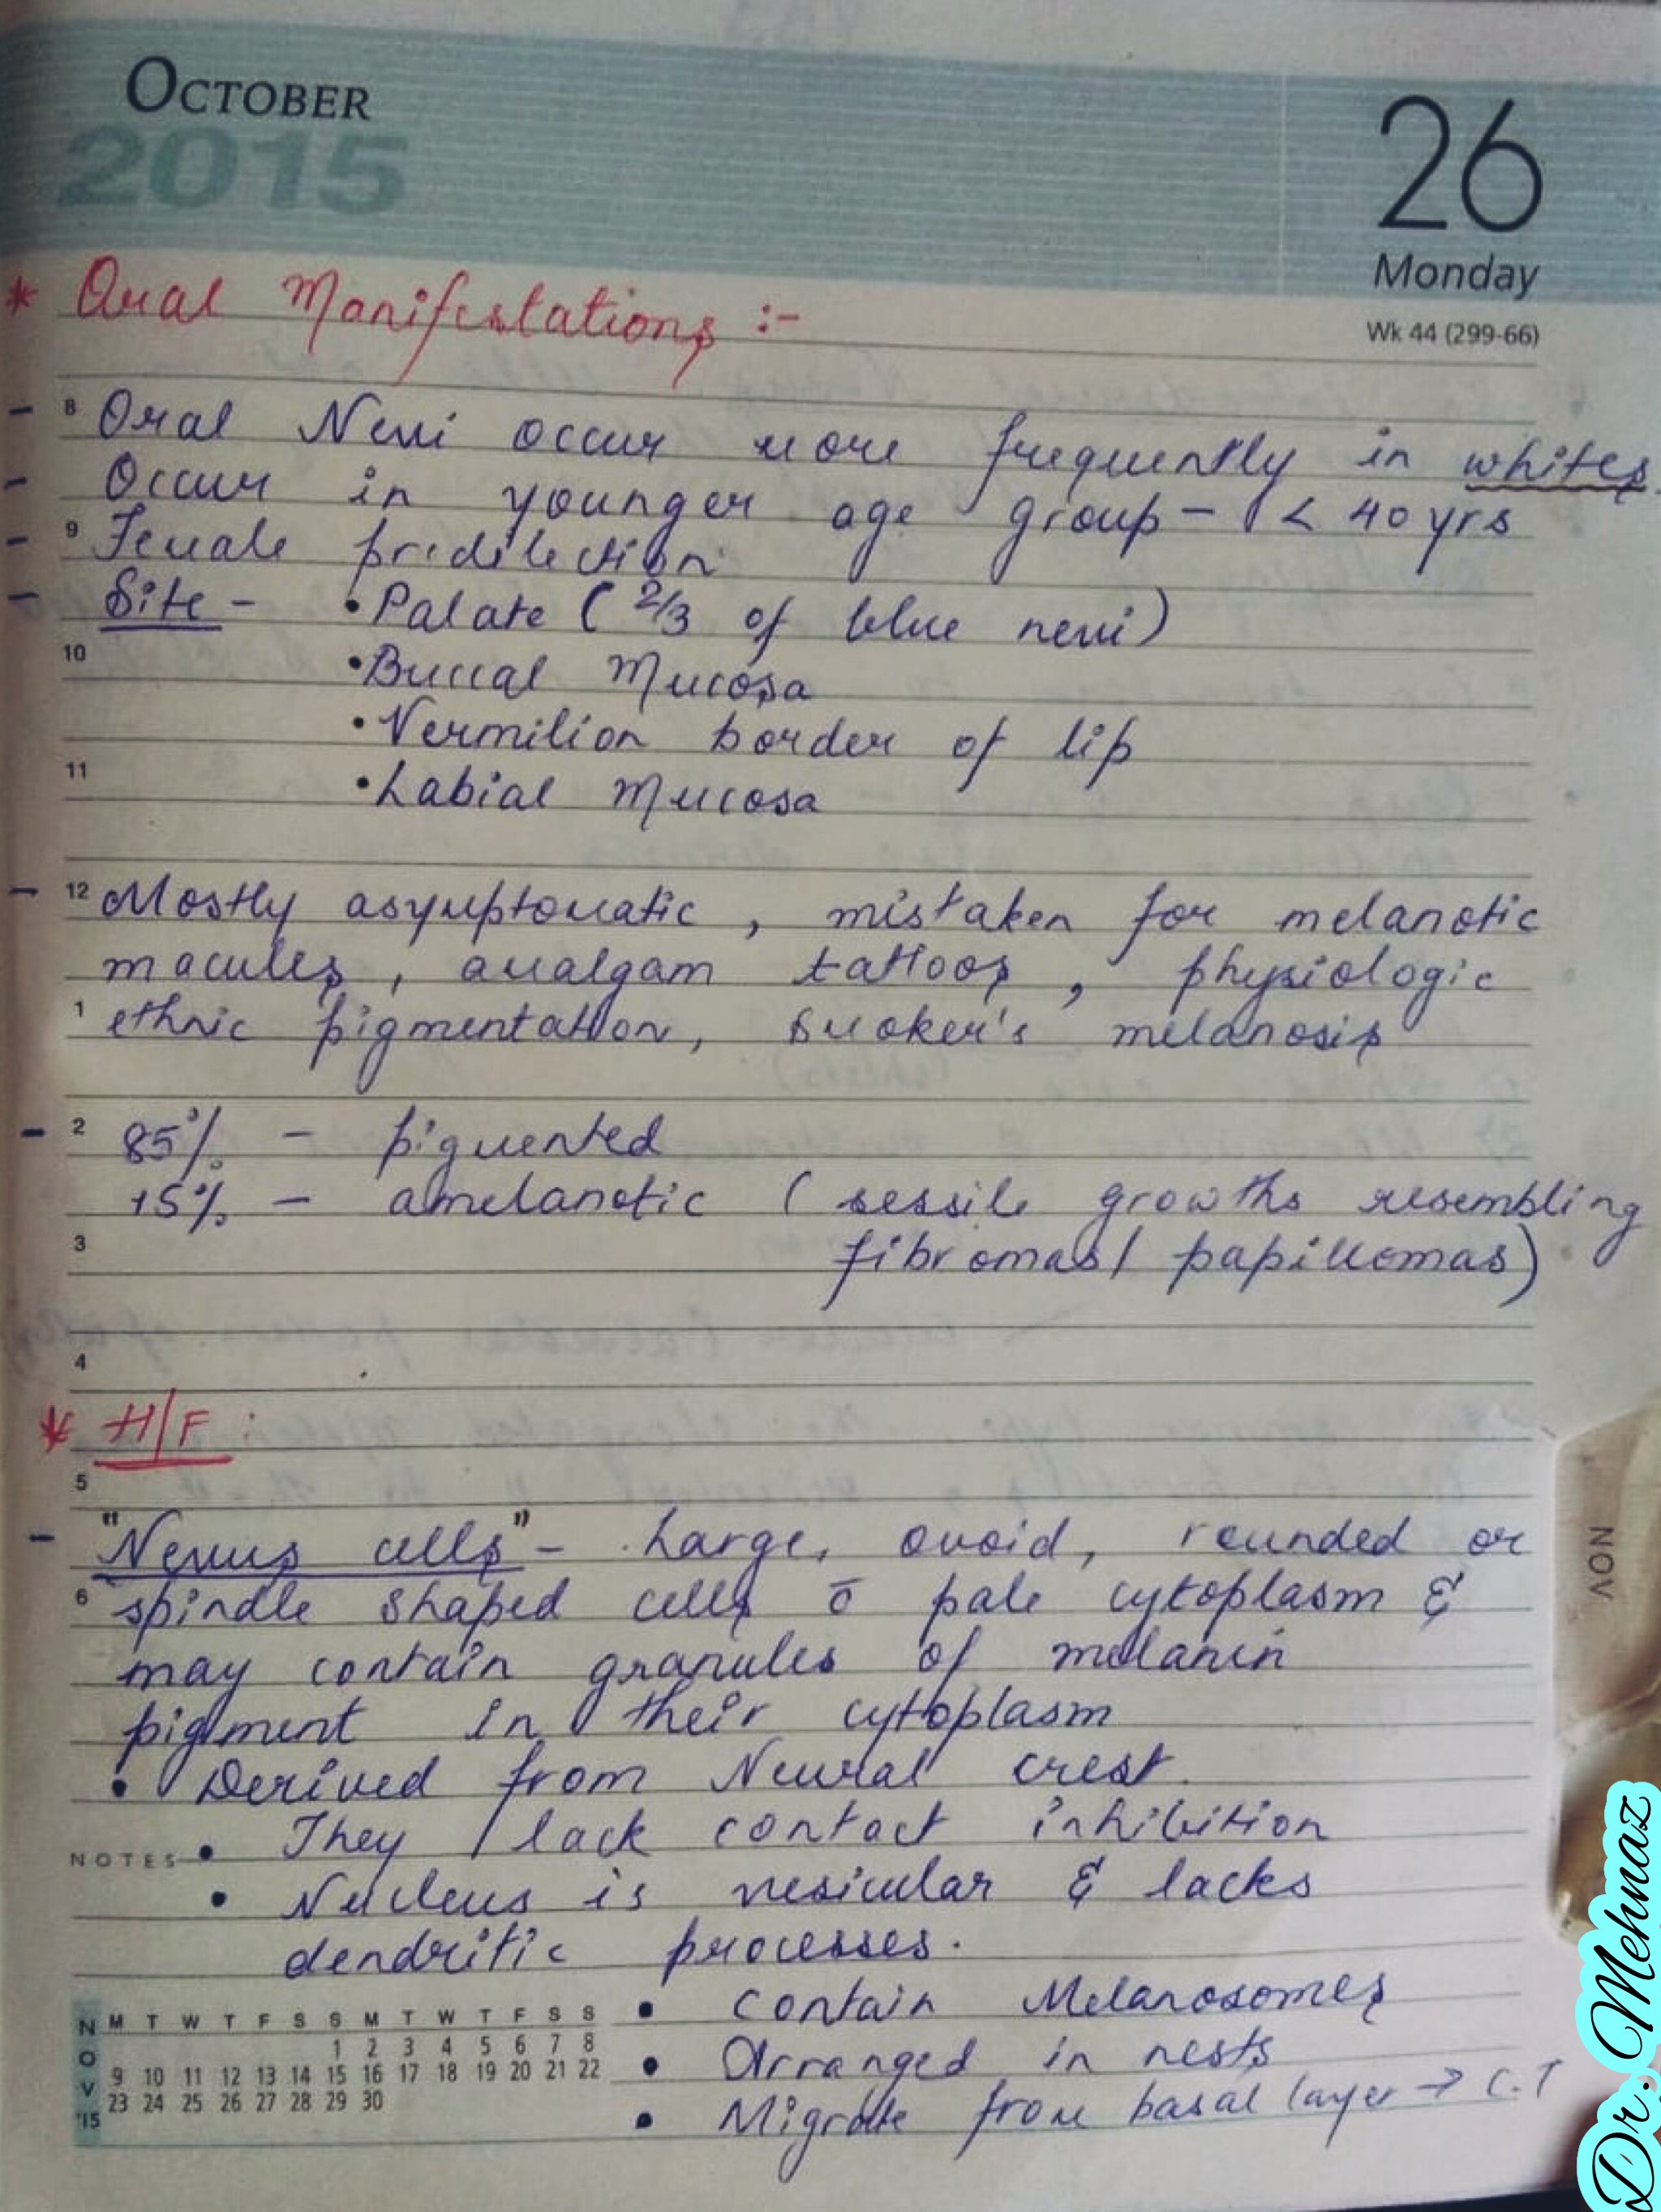 OCTOBER
2015
26
Monday
Wk 44 (299-66)
* Oral Manifestations :-
- 8 Oral Nevi occur more frequently in whites.
- Occur in younger age group - < 40 yrs
- 9 Female pridilection
- Site - • Palate ( 2/3 of blue nevi)
10 • Buccal Mucosa
• Vermilion border of lip
11 • Labial Mucosa
- 12 Mostly asymptomatic , mistaken for melanotic
macules , amalgam tattoos , physiologic
1 ethnic pigmentation, smoker's melanosis
- 2 85% - pigmented
15% - amelanotic ( sessile growths resembling
3 fibromas/ papillomas)
4
* H/F :
5
- "Nevus cells" - Large, ovoid, rounded or
6 spindle shaped cells c̄ pale cytoplasm &
may contain granules of melanin
pigment in their cytoplasm
• Derived from Neural crest.
NOTES • They lack contact inhibition
• Nucleus is vesicular & lacks
dendritic processes.
• Contain Melanosomes
• Arranged in nests
• Migrate from basal layer → C.T
NOV '15
M T W T F S S M T W T F S S
1 2 3 4 5 6 7 8
9 10 11 12 13 14 15 16 17 18 19 20 21 22
23 24 25 26 27 28 29 30
NOV
Dr. Mehnaz